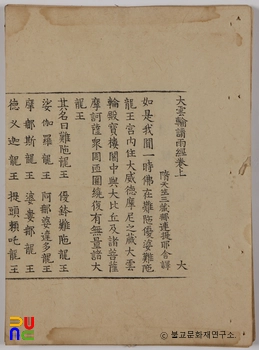 大雲輪請雨經卷上
大
隋天竺三藏那連提耶舍譯
如是我聞一時佛在難陁優婆難陁
龍王宮內住大威德摩尼之藏大雲
輪殿寶樓閣中與大比丘及諸菩薩
摩訶薩衆周帀圍繞復有無量諸大
龍王
其名曰難陁龍王 優鉢難陁龍王
娑伽羅龍王 阿那婆達多龍王
摩那斯龍王 婆婁那龍王
德叉迦龍王 提頭賴吒龍王
© 불교문화재연구소